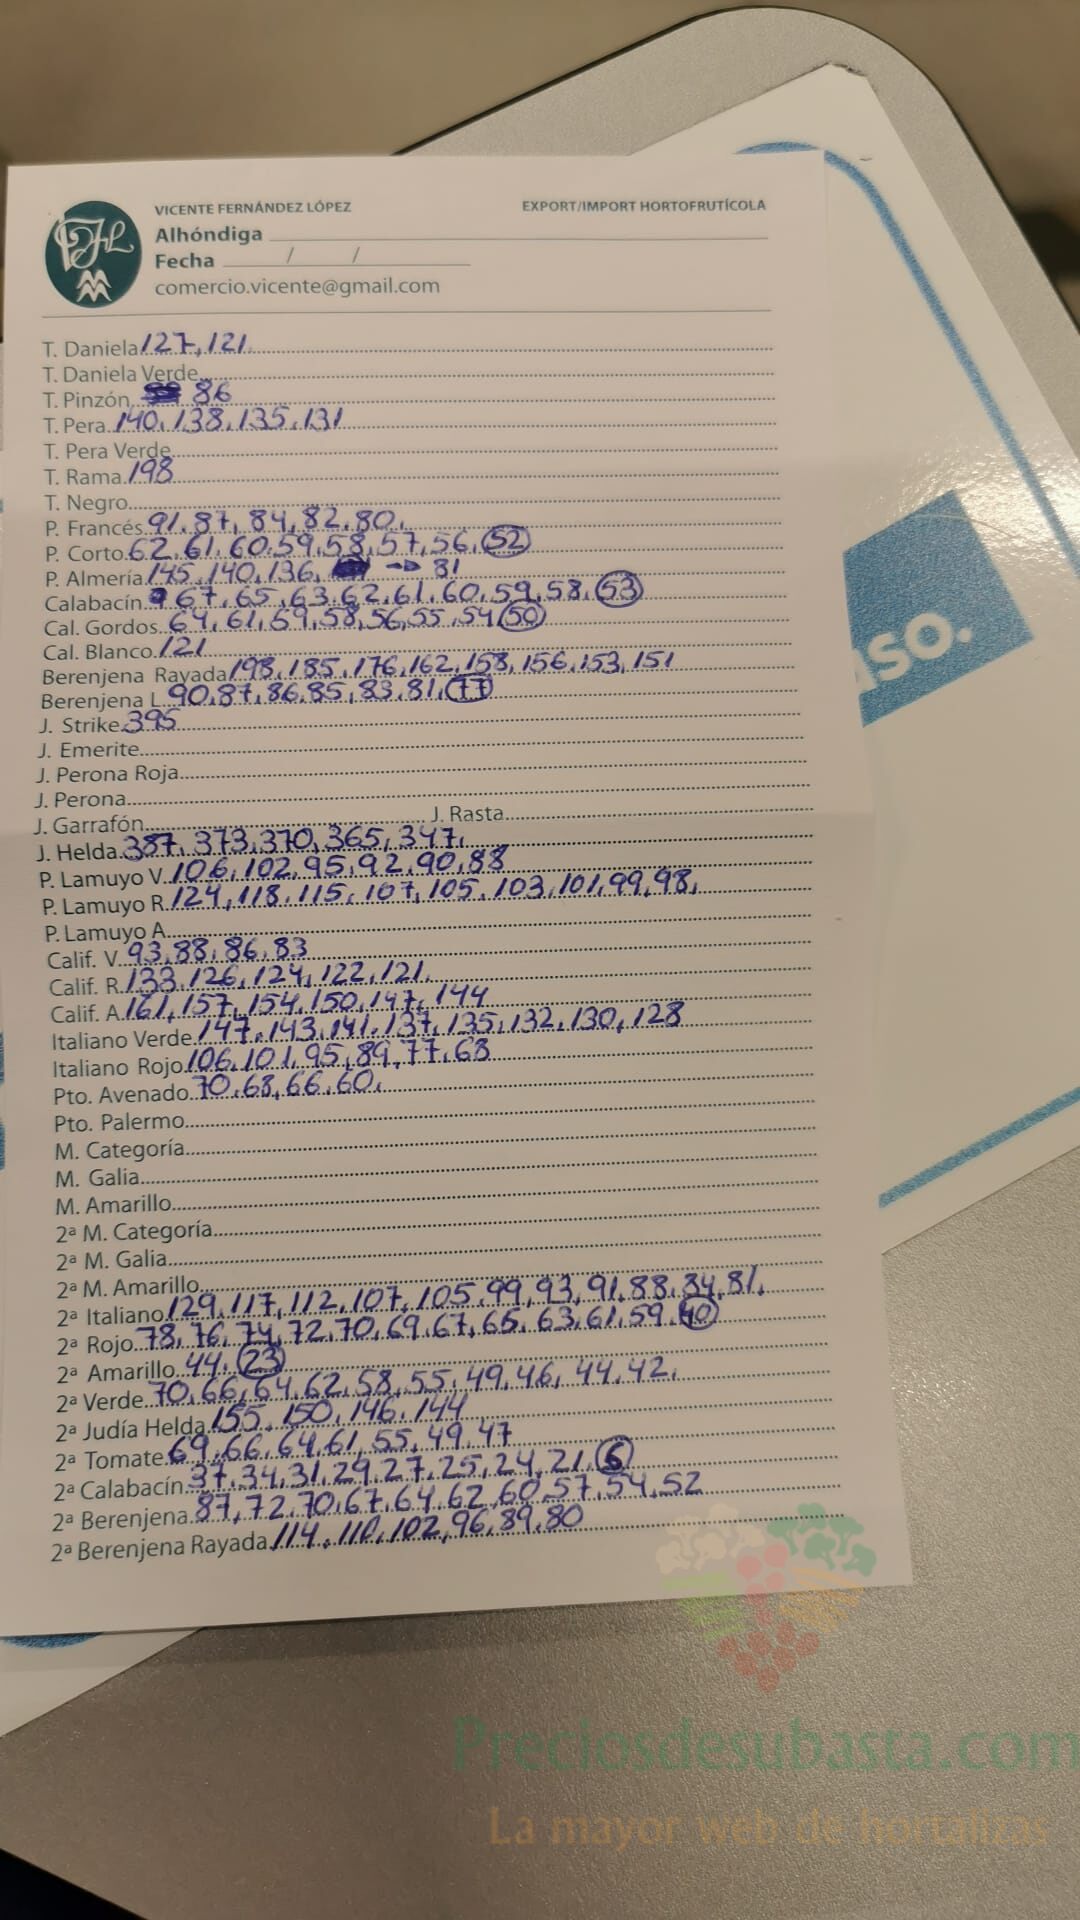 VICENTE FERNÁNDEZ LÓPEZ EXPORT/IMPORT HORTOFRUTÍCOLA
Alhóndiga
Fecha / /
comercio.vicente@gmail.com
T. Daniela 127, 121
T. Daniela Verde
T. Pinzón 86
T. Pera 140, 138, 135, 131
T. Pera Verde
T. Rama 198
T. Negro
P. Francés 91, 87, 84, 82, 80,
P. Corto 62, 61, 60, 59, 58, 57, 56, 52
P. Almería 145, 140, 136, → 81
Calabacín 67, 65, 63, 62, 61, 60, 59, 58, 53
Cal. Gordos 64, 61, 59, 58, 56, 55, 54, 50
Cal. Blanco 121
Berenjena Rayada 198, 185, 176, 162, 158, 156, 153, 151
Berenjena L. 90, 87, 86, 85, 83, 81, 77
J. Strike 395
J. Emerite
J. Perona Roja
J. Perona
J. Garrafón J. Rasta
J. Helda 387, 373, 370, 365, 347,
P. Lamuyo V. 106, 102, 95, 92, 90, 88
P. Lamuyo R. 124, 118, 115, 107, 105, 103, 101, 99, 98,
P. Lamuyo A.
Calif. V. 93, 88, 86, 83
Calif. R. 133, 126, 124, 122, 121,
Calif. A. 161, 157, 154, 150, 147, 144
Italiano Verde 147, 143, 141, 137, 135, 132, 130, 128
Italiano Rojo 106, 101, 95, 89, 77, 68
Pto. Avenado 70, 68, 66, 60,
Pto. Palermo
M. Categoría
M. Galia
M. Amarillo
2ª M. Categoría
2ª M. Galia
2ª M. Amarillo
2ª Italiano 129, 117, 112, 107, 105, 99, 93, 91, 88, 84, 81,
2ª Rojo 78, 76, 74, 72, 70, 69, 67, 65, 63, 61, 59, 40
2ª Amarillo 44, 23
2ª Verde 70, 66, 64, 62, 58, 55, 49, 46, 44, 42,
2ª Judía Helda 155, 150, 146, 144
2ª Tomate 69, 66, 64, 61, 55, 49, 47
2ª Calabacín 37, 34, 31, 29, 27, 25, 24, 21, 6
2ª Berenjena 87, 72, 70, 67, 64, 62, 60, 57, 54, 52
2ª Berenjena Rayada 114, 110, 102, 96, 89, 80
Preciosdesubasta.com
La mayor web de hortalizas